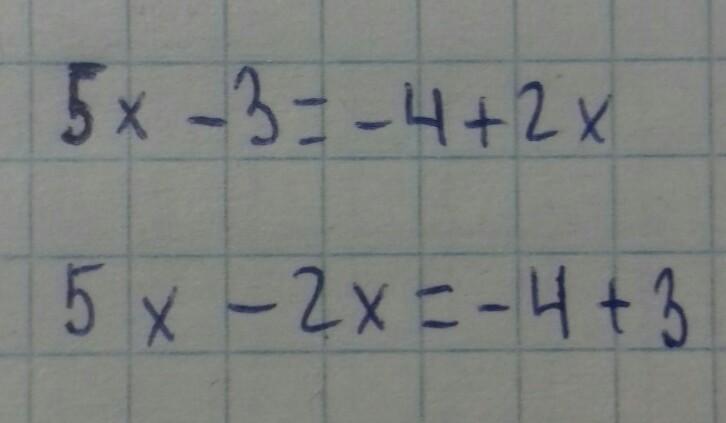 5x - 3 = -4 + 2x
5x - 2x = -4 + 3